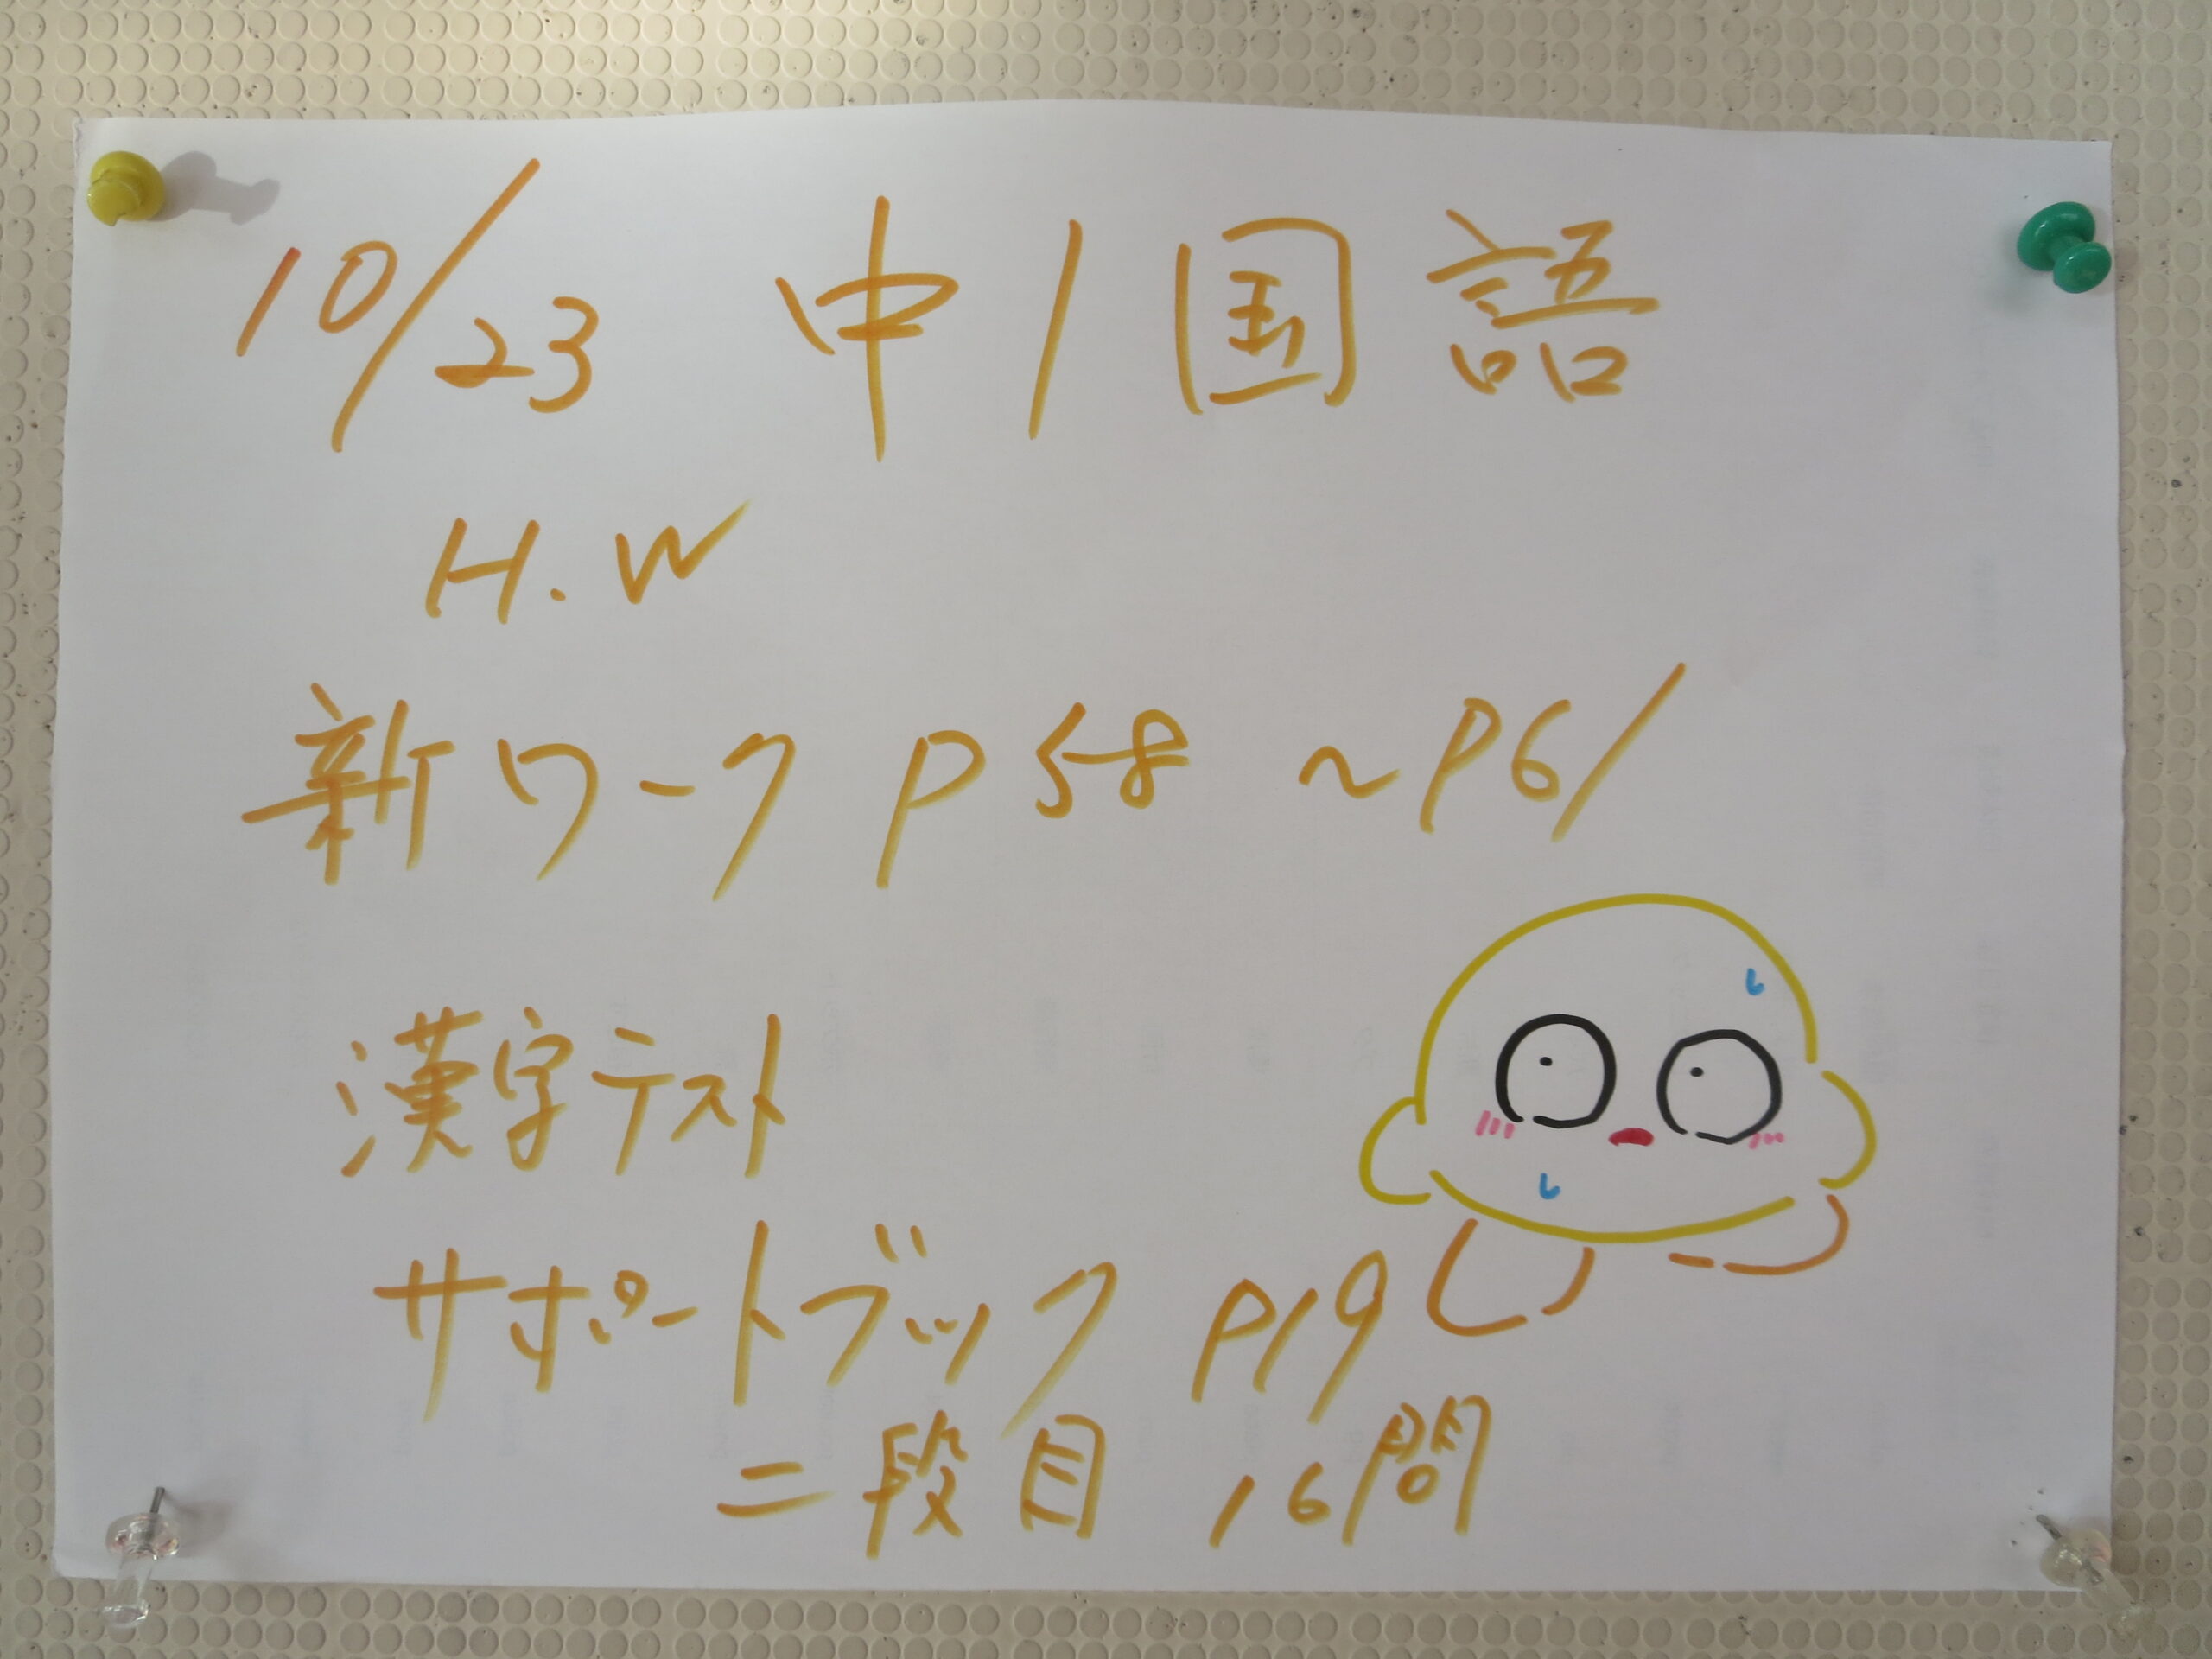 10/23 中1国語
H.W
新ワーク P58 ~P61
漢字テスト
サポートブック P19
二段目 16問